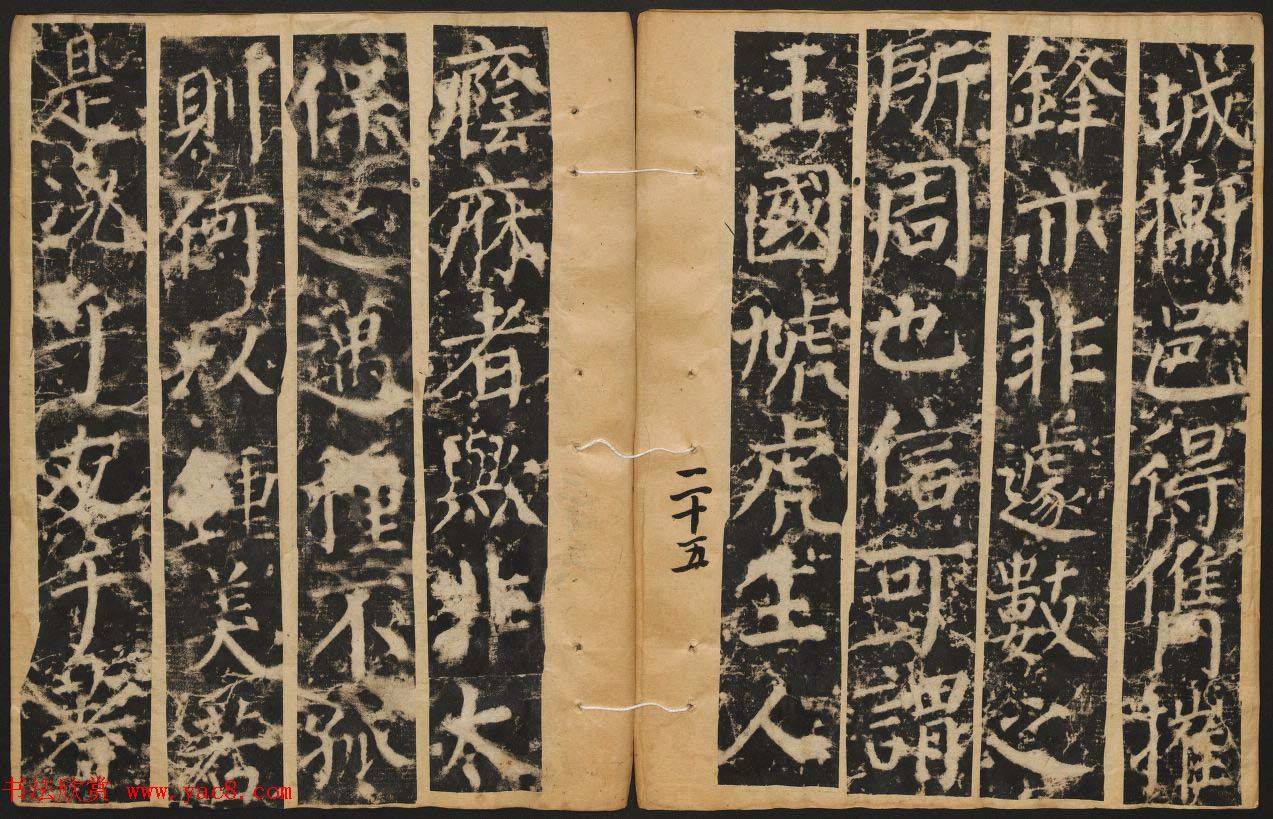 城摲邑得儁摧
鋒亦非遽數之
所周也信可謂
王國虓虎生人
廕庥者歟非太
保之邁種不孤
則何以重美若
是況乎友于著
二十五
书法欣赏 www.yac8.com